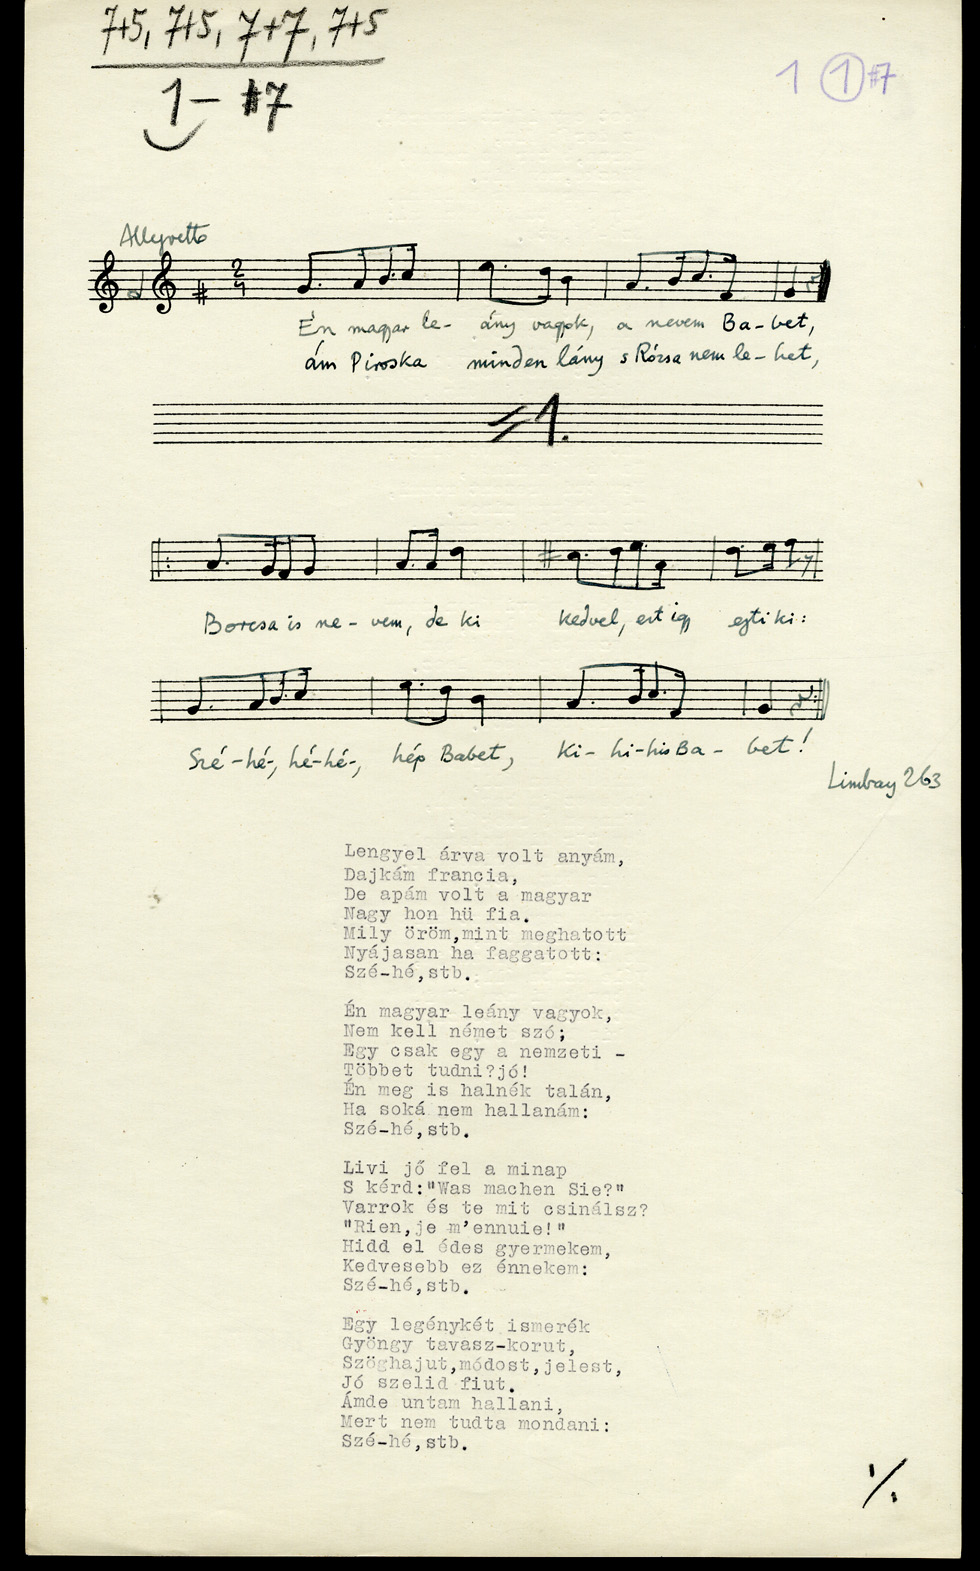 7+5, 7+5, 7+7, 7+5
1– #7
1 1 #7
Allegretto
2
4
Én magyar le- ány vagyok, a nevem Ba-bet,
ám Piroska minden lány s Rózsa nem le-het,
1.
Borcsa is ne-vem, de ki kedvel, ezt így ejti ki:
Szé-hé-, hé-hé-, hép Babet, Ki-hi-his Ba-bet!
Limbay 263
Lengyel árva volt anyám,
Dajkám francia,
De apám volt a magyar
Nagy hon hü fia.
Mily öröm,mint meghatott
Nyájasan ha faggatott:
Szé-hé,stb.
Én magyar leány vagyok,
Nem kell német szó;
Egy csak egy a nemzeti -
Többet tudni?jó!
Én meg is halnék talán,
Ha soká nem hallanám:
Szé-hé,stb.
Livi jő fel a minap
S kérd:"Was machen Sie?"
Varrok és te mit csinálsz?
"Rien,je m'ennuie!"
Hidd el édes gyermekem,
Kedvesebb ez énnekem:
Szé-hé,stb.
Egy legénykét ismerék
Gyöngy tavasz-korut,
Szöghajut,módost,jelest,
Jó szelid fiut.
Ámde untam hallani,
Mert nem tudta mondani:
Szé-hé,stb.
·/.